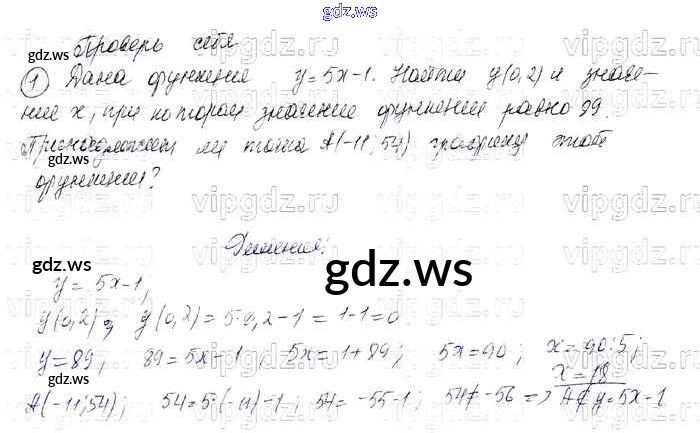 gdz.ws
Проверь себя
gdz.ws
① Дана функция y=5x-1. Найти y(0,2) и значе-
ние x, при котором значение функции равно 89.
Принадлежит ли точка A(-11; 54) графику этой
функции?
Решение:
gdz.ws
y = 5x-1,
y(0,2) y(0,2) = 5·0,2-1 = 1-1=0
y=89, 89=5x-1, 5x=1+89; 5x=90; x=90:5;
x=18
A(-11; 54); 54=5·(-11)-1; 54=-55-1; 54≠-56 => A∉y=5x-1
gdz.ws
gdz.ws
gdz.ws
gdz.ws
vipgdz.ru